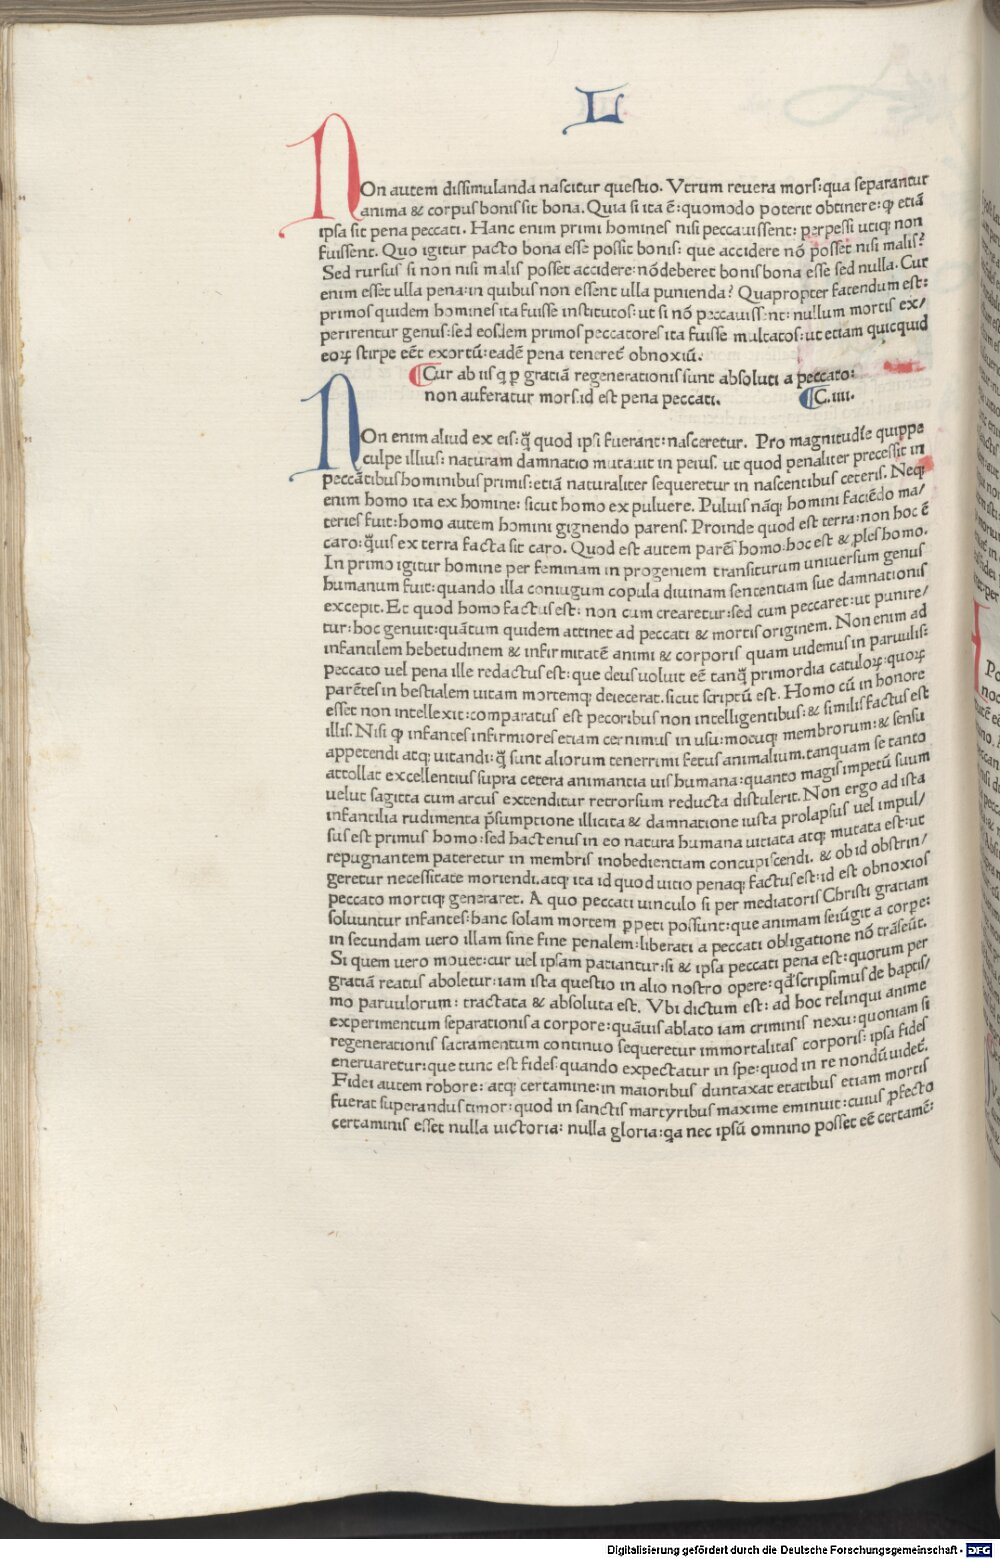 L
NOn autem dissimulanda nascitur questio. Vtrum reuera mors: qua separantur
anima & corpus bonis sit bona. Quia si ita ē: quomodo poterit obtinere: ꝙ etiā
ipsa sit pena peccati. Hanc enim primi homines nisi peccauissent: perpessi utiqꝫ non
fuissent. Quo igitur pacto bona esse possit bonis: que accidere nō posset nisi malis?
Sed rursus si non nisi malis posset accidere: nō deberet bonis bona esse sed nulla. Cur
enim esset ulla pena: in quibus non essent ulla punienda? Quapropter fatendum est:
primos quidem homines ita fuisse institutos: ut si nō peccauissent: nullum mortis ex/
perirentur genus: sed eosdem primos peccatores ita fuisse multatos: ut etiam quicquid
eoꝝ stirpe eēt exortū: eadē pena teneret᷑ obnoxiū.
¶Cur ab iis q ꝑ gratiā regenerationis sunt absoluti a peccato:
non auferatur mors. id est pena peccati. ¶C. iiii.
NOn enim aliud ex eis: q̄ quod ipsi fuerant: nasceretur. Pro magnitudīe quippe
culpe illius: naturam damnatio mutauit in peius. ut quod penaliter precessit in
peccātibus hominibus primis: etiā naturaliter sequeretur in nascentibus ceteris. Neqꝫ
enim homo ita ex homine: sicut homo ex puluere. Puluis nāqꝫ homini faciēdo ma/
teries fuit: homo autem homini gignendo parens. Proinde quod est terra: non hoc ē
caro: q̄uis ex terra facta sit caro. Quod est autem parēs homo: hoc est & ples homo.
In primo igitur homine per feminam in progeniem transiturum uniuersum genus
humanum fuit: quando illa coniugum copula diuinam sententiam sue damnationis
excepit. Et quod homo factus est: non cum crearetur: sed cum peccaret: ut punire/
tur: hoc genuit: quātum quidem attinet ad peccati & mortis originem. Non enim ad
infantilem hebetudinem & infirmitatē animi & corporis quam uidemus in paruulis:
peccato uel pena ille redactus est: que deus uoluit eē tanq̄ primordia catuloꝝ: quoꝝ
parētes in bestialem uitam mortemqꝫ deiecerat. sicut scriptū est. Homo cū in honore
esset non intellexit: comparatus est pecoribus non intelligentibus: & similis factus est
illis. Nisi ꝙ infantes infirmiores etiam cernimus in usu: motuqꝫ membrorum: & sensu
appetendi atqꝫ uitandi: q̄ sunt aliorum tenerrimi fetus animalium. tanquam se tanto
attollat excellentius supra cetera animantia uis humana: quanto magis impetū suum
uelut sagitta cum arcus extenditur retrorsum reducta distulerit. Non ergo ad ista
infantilia rudimenta p̄sumptione illicita & damnatione iusta prolapsus uel impul/
sus est primus homo: sed hactenus in eo natura humana uitiata atqꝫ mutata est: ut
repugnantem pateretur in membris inobedientiam concupiscendi. & ob id obstrin/
geretur necessitate moriendi. atqꝫ ita id quod uitio penaqꝫ factus est: id est obnoxios
peccato mortiqꝫ generaret. A quo peccati uinculo si per mediatoris Christi gratiam
soluuntur infantes: hanc solam mortem ꝑpeti possunt: que animam seiūgit a corpe:
in secundam uero illam sine fine penalem: liberati a peccati obligatione nō trāseūt.
Si quem uero mouet: cur uel ipsam patiantur: si & ipsa peccati pena est: quorum per
gratiā reatus aboletur: iam ista questio in alio nostro opere: qd̄ scripsimus de baptis/
mo paruulorum: tractata & absoluta est. Vbi dictum est: ad hoc relinqui anime
experimentum separationis a corpore: quāuis ablato iam criminis nexu: quoniam si
regenerationis sacramentum continuo sequeretur immortalitas corporis: ipsa fides
eneruaretur: que tunc est fides: quando expectatur in spe: quod in re nondū uidet᷑.
Fidei autem robore: atqꝫ certamine: in maioribus duntaxat etatibus etiam mortis
fuerat superandus timor: quod in sanctis martyribus maxime eminuit: cuius ꝓfecto
certaminis esset nulla uictoria: nulla gloria: qa nec ipsū omnino posset eē certamē:
Digitalisierung gefördert durch die Deutsche Forschungsgemeinschaft - DFG